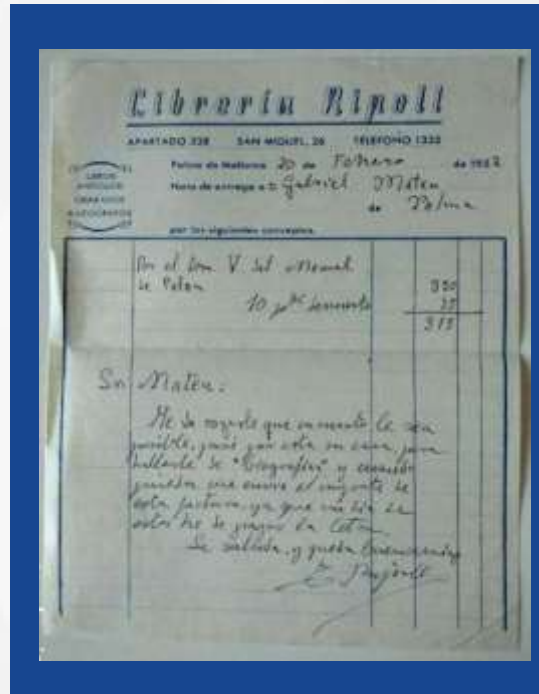 Librería Ripoll
APARTADO 338 SAN MIGUEL, 26 TELEFONO 1333
LIBROS
ANTIGUOS
GRABADOS
AUTOGRAFOS
Palma de Mallorca 20 de Febrero de 195
Nota de entrega a D. Gabriel Mateu
de Palma
por los siguientes conceptos.
Por el tom V del Manual
de Palau 350
10 descuento 35
315
Sr. Mateu.
He de rogarle que en cuanto le sea
posible, pase por esta su casa para
hablarle de "Geografías" y cuando
pueda me envíe el importe de
esta factura, ya que
estos he de pagar la
Le saluda, y queda